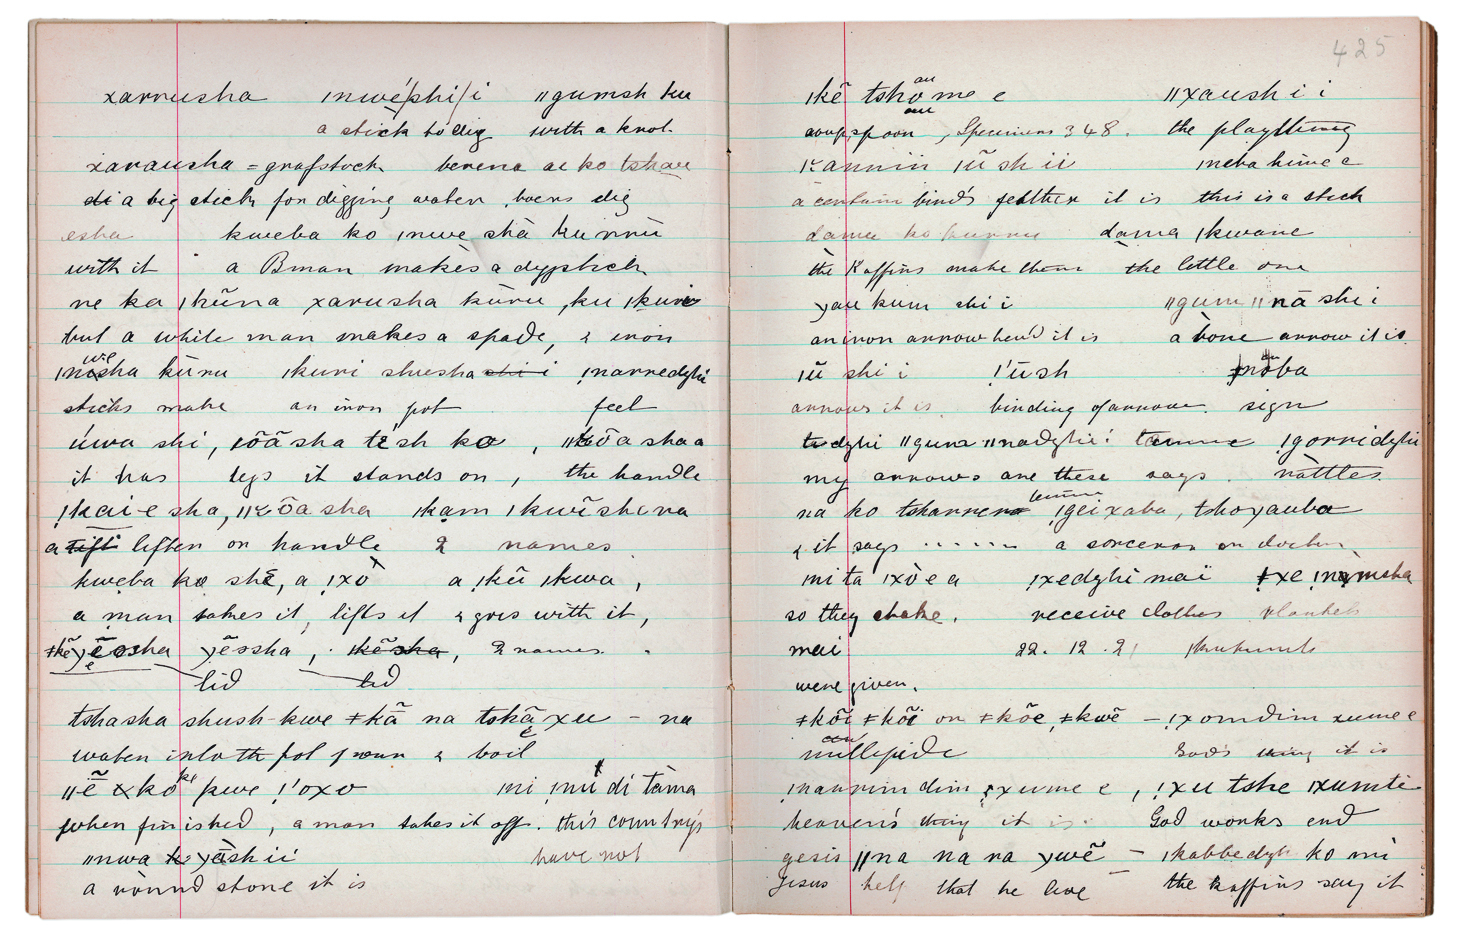 xarrusha ǀnwéshi/i ǁgumsh ku
a stick to dig with a knob.
xarausha = grafstock berena ae ko tshau
di a big stick for digging water, boers dig
esha kweba ko ǀnwe shà kurrù
with it a Bman makes a digstick
ne ka ǀkũna xarusha kùru, ku ǀkuri
but a white man makes a spade, & iron
ǀnwesha kùru ǀkuri shuesha shi i ǃnarredghi
sticks make an iron pot feet
úwa shi, ǀõãsha tésh ko, ǁkõashaa
it has legs it stands on, the handle
ǃkai-e sha, ǁkõasha ǀkam ǀkwĩshena
a tift lifter or handle 2 names
kweba ko shẽ, a ǃxò a ǀkũ ǀkwa,
a man takes it, lifts it & goes with it,
ǂkẽyẽosha yẽssha, ǀkẽsha, 2 names.
lid lid
tshasha shush-kwe ǂkã na tskãxu – na
water into the pot pour & boil
ǁẽ kõ kwe ǃ'oxo mi ǃnu di tàma
when finished, a man takes it off. this country's
ǁnwa yàshii have not
a round stone it is
425
ǀkẽ tshome e ǁxaushi i
soup spoon, Specimens 348. the plaything
kannin ǀũshii ǀneba hùwe e
a certain binds feather it is this is a stick
dama ko kurru dama ǀkwane
the Kaffirs make them the little one
yau kum shi i ǁgum ǁnā shi i
an iron arrow head it is a bone arrow it is.
ǀũ shi i ǃ'ūsh ǂnoba
arrows it is. binding of arrow. sign
tedghi ǁguna ǁnadghii tamme ǃgorridghi
my arrows are these says. rattles
na ko tshannena ǃgeixaba, tshoyauba
& it says ........ a sorceror or doctor
mi ta ǀxòe a ǃxedghi mai ǂxe ǃnàmsha
so they shake. receive clothes blankets
mai 22. 12. 21 ǀkukurub
were given.
ǂkõi ǂkõi or ǂkõe, ǂkwẽ – ǃxomdim xume e
millepide God's thing it is
ǃnaurim dim ǃxume e, ǃxu tshe ǀxumte
heaven's thing it is. God works end
gesis ǁna na na ywẽ – ǀkabbedgh ko mi
Jesus help that he live the Kaffirs say it